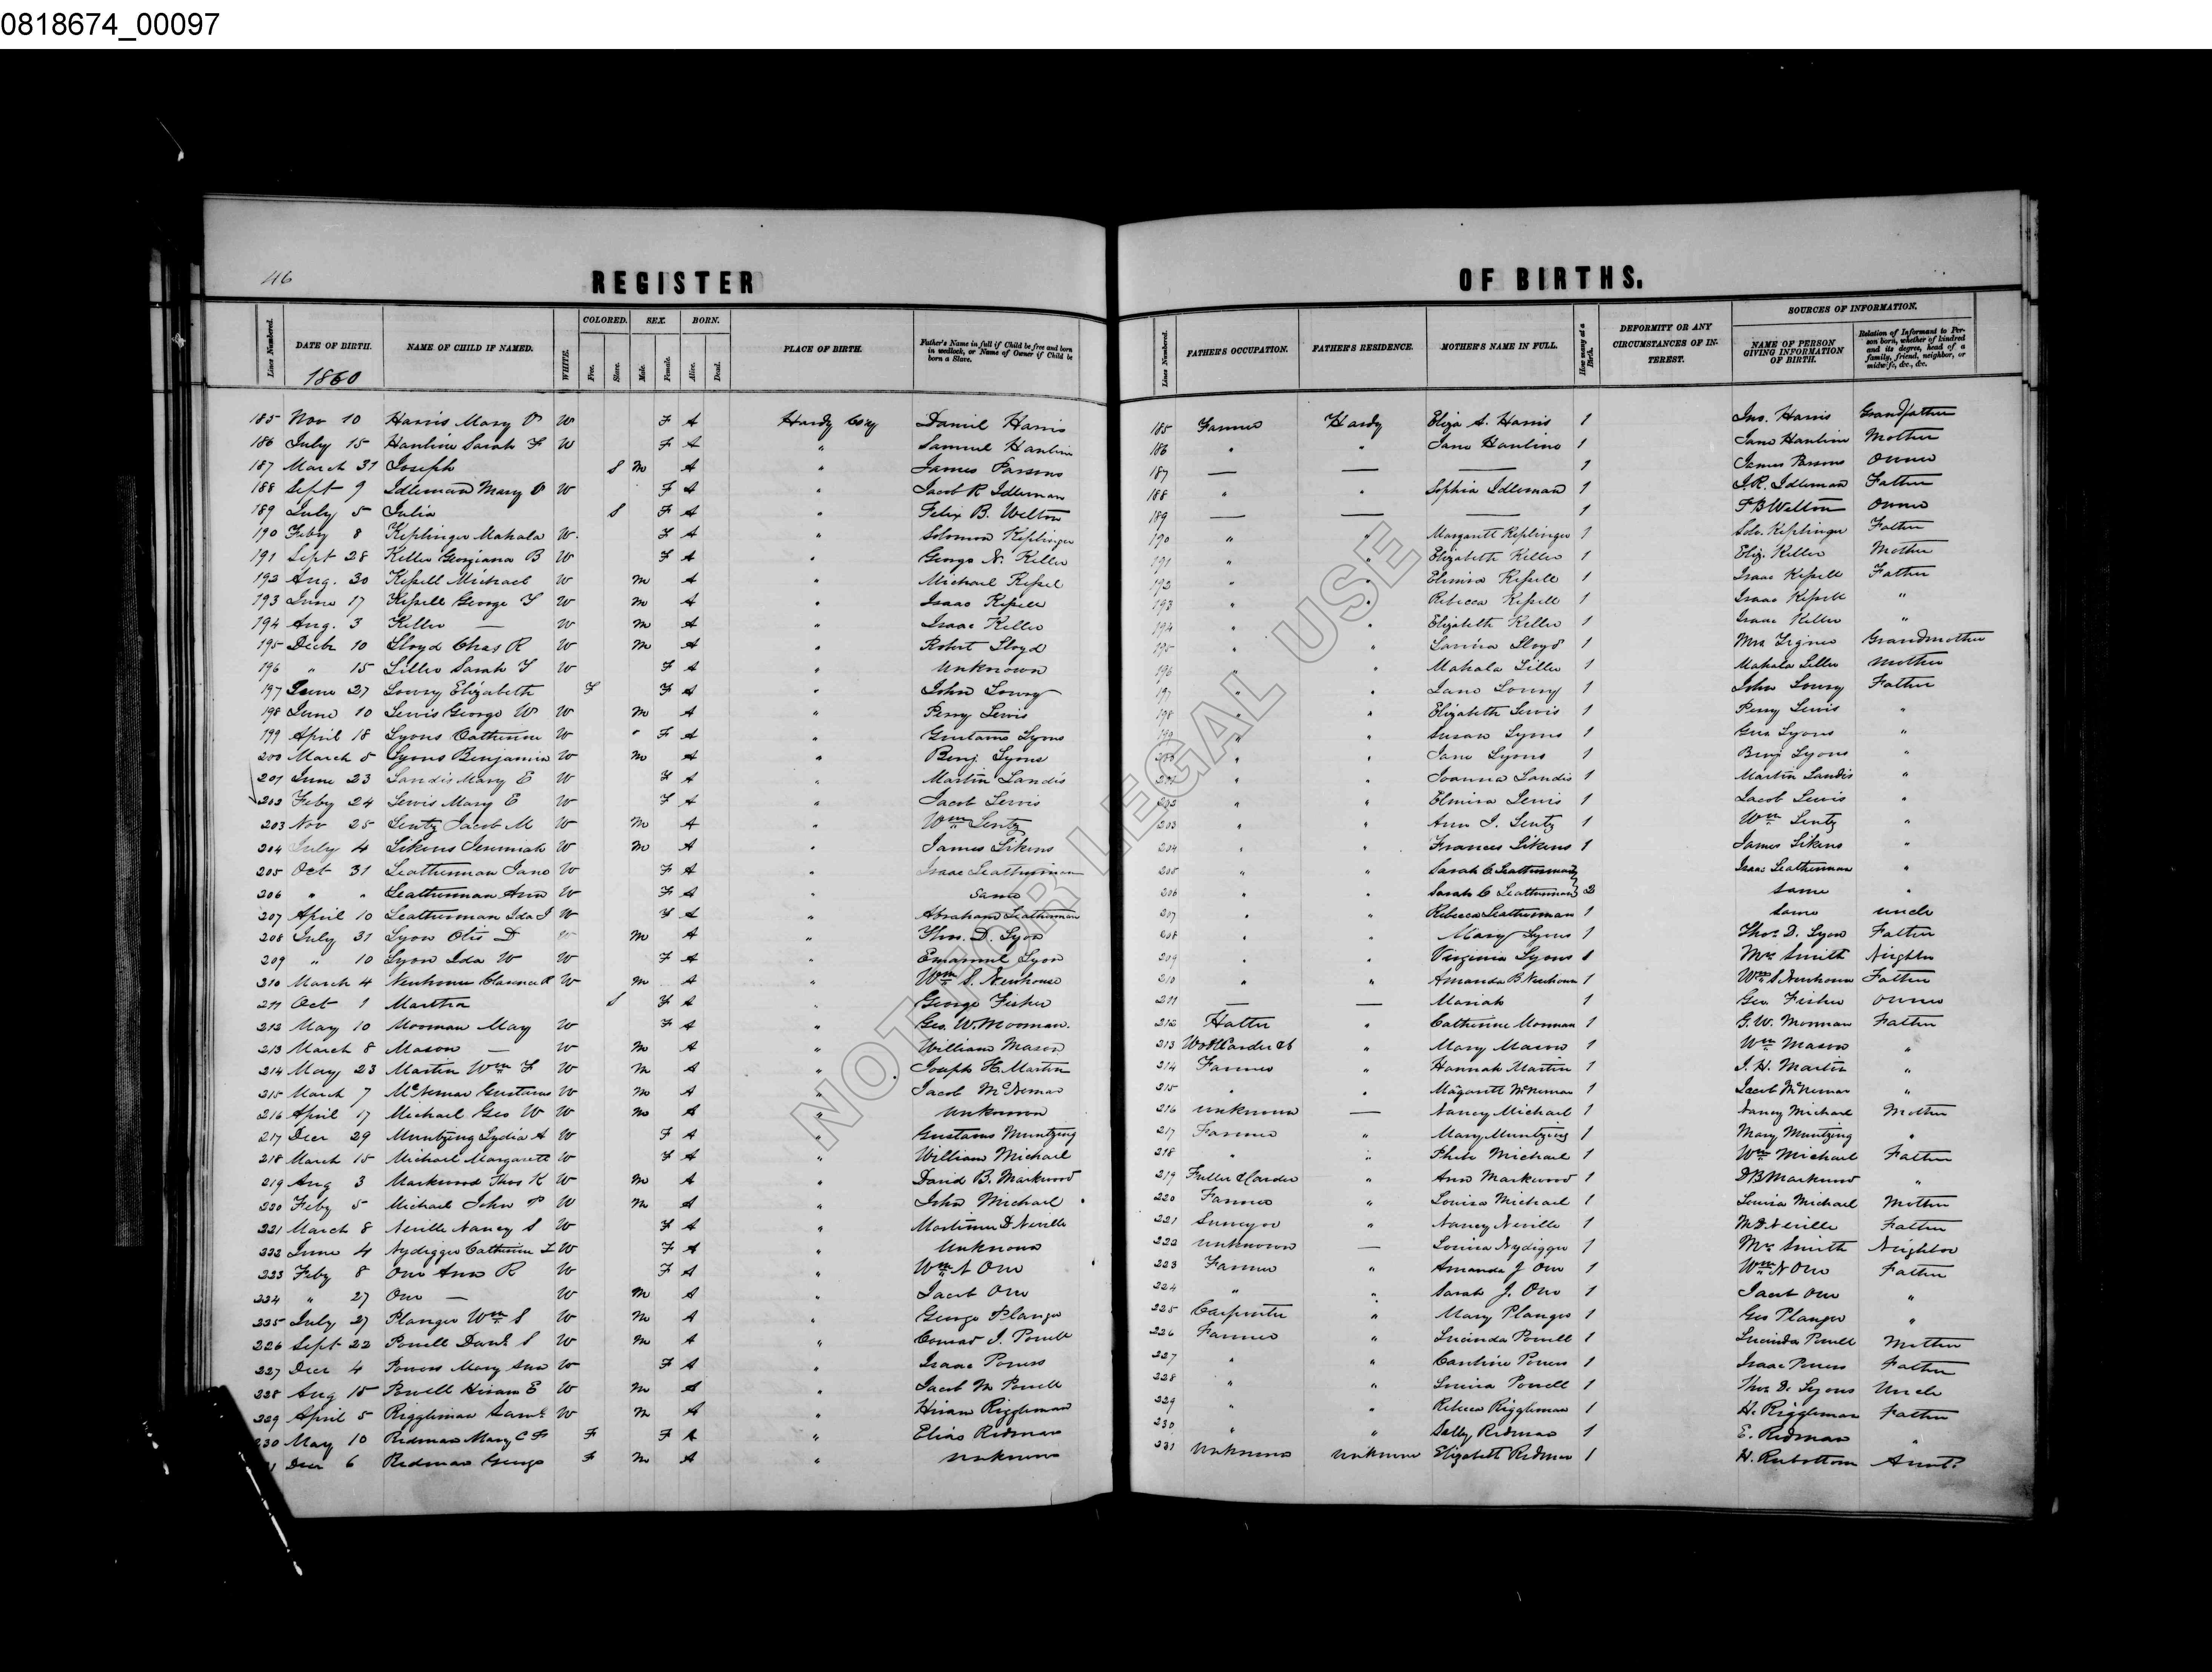 0818674_00097
46
REGISTER OF BIRTHS.
Lines Numbered. DATE OF BIRTH. NAME OF CHILD IF NAMED. WHITE. COLORED. Free. Slave. SEX. Male. Female. BORN. Alive. Dead. PLACE OF BIRTH. Father's Name in full if Child be free and born in wedlock, or Name of Owner if Child be born a Slave. Lines Numbered. FATHER'S OCCUPATION. FATHER'S RESIDENCE. MOTHER'S NAME IN FULL. How many at a Birth. DEFORMITY OR ANY CIRCUMSTANCES OF INTEREST. SOURCES OF INFORMATION. NAME OF PERSON GIVING INFORMATION OF BIRTH. Relation of Informant to Person born, whether of kindred and its degree, head of a family, friend, neighbor, or midwife, &c., &c.
1860
185 Nov 10 Harris Mary V W F A Hardy Co Daniel Harris 185 Farmer Hardy Eliza A. Harris 1 Jno. Harris Grandfather
186 July 15 Hanline Sarah F W F A " Samuel Hanlin 186 " " Jane Hanline 1 Jane Hanline Mother
187 March 31 Joseph S M A " James Parsons 187 — — — 1 James Parsons Owner
188 Sept 9 Idleman Mary V W F A " Jacob R Idleman 188 " " Sophia Idleman 1 J. R. Idleman Father
189 July 5 Julia S F A " Felix B. Welton 189 — — — 1 F B Welton Owner
190 Feby 8 Kiplinger Mahala W. F A " Solomon Kiplinger 190 " " Margarett Kiplinger 1 Solo. Kiplinger Father
191 Sept 28 Keller Georgiana B W F A " George N. Keller 191 " " Elizabeth Keller 1 Eliz. Keller Mother
192 Aug. 30 Kissell Michael W M A " Michael Kissel 192 " " Elmira Kissell 1 Isaac Kissell Father
193 June 17 Kissell George F W M A " Isaac Kissell 193 " " Rebecca Kissell 1 Isaac Kissell "
194 Aug. 3 Keller — W M A " Isaac Keller 194 " " Elizabeth Keller 1 Isaac Keller "
195 Decbr 10 Lloyd Chas R W M A " Robert Lloyd 195 " " Lloyd 1 Mrs Grandmother
196 " 15 Liller Sarah F W F A " Unknown 196 " " Mahala Liller 1 Mahala Liller Mother
197 June 27 Lowry Elizabeth F F A " John Lowry 197 " " Jane Lowry 1 John Lowry Father
198 June 10 Lewis George W W M A " Perry Lewis 198 " " Elizabeth Lewis 1 Perry Lewis "
199 April 18 Lyons Catherine W F A " Gustavus Lyons 199 " " Susan Lyons 1 Gus Lyons "
200 March 5 Lyons Benjamin W M A " Benj. Lyons 200 " " Jane Lyons 1 Benj Lyons "
201 June 23 Landis Mary E W F A " Martin Landis 201 " " Joanna Landis 1 Martin Landis "
202 Feby 24 Lewis Mary E W F A " Jacob Lewis 202 " " Elmira Lewis 1 Jacob Lewis "
203 Nov 25 Lentz Jacob M W M A " Wm Lentz 203 " " Ann J. Lentz 1 Wm Lentz "
204 July 4 Likens Jeremiah W M A " James Likens 204 " " Frances Likens 1 James Likens "
205 Oct 31 Leatherman Jane W F A " Isaac Leatherman 205 " " Sarah C Leatherman Isaac Leatherman "
206 " " Leatherman Ann W F A " Same 206 " " Sarah C Leatherman 2 Same "
207 April 10 Leatherman Ida J W F A " Abraham Leatherman 207 " " Rebecca Leatherman 1 Same Uncle
208 July 31 Lyon Otis D W M A " Thos. D. Lyon 208 " " Mary Lyons 1 Thos. D. Lyon Father
209 " 10 Lyon Ida W W F A " Emanuel Lyon 209 " " Virginia Lyons 1 Mrs Smith Neighbor
210 March 4 Newhouse Clarence R W M A " Wm S. Newhouse 210 " " Amanda B Newhouse 1 Wm S Newhouse Father
211 Oct 1 Martha S F A " George Fisher 211 — — Mariah 1 Geo. Fisher Owner
212 May 10 Mooman May W F A " Geo. W. Mooman. 212 Hatter " Catherine Mooman 1 G. W. Mooman Father
213 March 8 Mason — W M A " William Mason 213 Wool Carder " Mary Mason 1 Wm Mason "
214 May 23 Martin Wm F W M A " Joseph H. Martin 214 Farmer " Hannah Martin 1 J. H. Martin "
215 March 7 McNemar Gustavus W M A " Jacob McNemar 215 " " Margarett McNemar 1 Jacob McNemar "
216 April 17 Michael Geo W W M A " Unknown 216 Unknown — Nancy Michael 1 Nancy Michael Mother
217 Decr 29 Muntzing Lydia A W F A " Gustavus Muntzing 217 Farmer " Mary Muntzing 1 Mary Muntzing "
218 March 15 Michael Margarett W F A " William Michael 218 " " Michael 1 Wm Michael Father
219 Aug 3 Markwood Thos K W M A " David B. Markwood 219 Fuller & Carder " Ann Markwood 1 D B Markwood "
220 Feby 5 Michael John P W M A " John Michael 220 Farmer " Louisa Michael 1 Louisa Michael Mother
221 March 8 Neville Nancy S W F A " Mortimer D Neville 221 Surveyor " Nancy Neville 1 M D Neville Father
222 June 4 Nydigger Catherine L W F A " Unknown 222 Unknown — Louisa Nydigger 1 Mrs Smith Neighbor
223 Feby 8 Orr Ann R W F A " Wm N Orr 223 Farmer " Amanda J Orr 1 Wm N Orr Father
224 " 27 Orr — W M A " Jacob Orr 224 " " Sarah J. Orr 1 Jacob Orr "
225 July 27 Planger Wm S W M A " George Planger 225 Carpenter " Mary Planger 1 Geo Planger "
226 Sept 22 Powell Danl S W M A " Conrad J. Powell 226 Farmer " Lucinda Powell 1 Lucinda Powell Mother
227 Decr 4 Powers Mary Ann W F A " Isaac Powers 227 " " Caroline Powers 1 Isaac Powers Father
228 Aug 15 Powell Hiram E W M A " Jacob M Powell 228 " " Louisa Powell 1 Thos D. Lyons Uncle
229 April 5 Riggleman Saml W M A " Hiram Riggleman 229 " " Rebecca Riggleman 1 H. Riggleman Father
230 May 10 Redman Mary C F F F A " Elias Redman 230 " " Sally Redman 1 E. Redman "
Decr 6 Redman George F M A " Unknown 231 Unknown Unknown Elizabeth Redman 1 H. Rubottom Aunt.
NOT FOR LEGAL USE